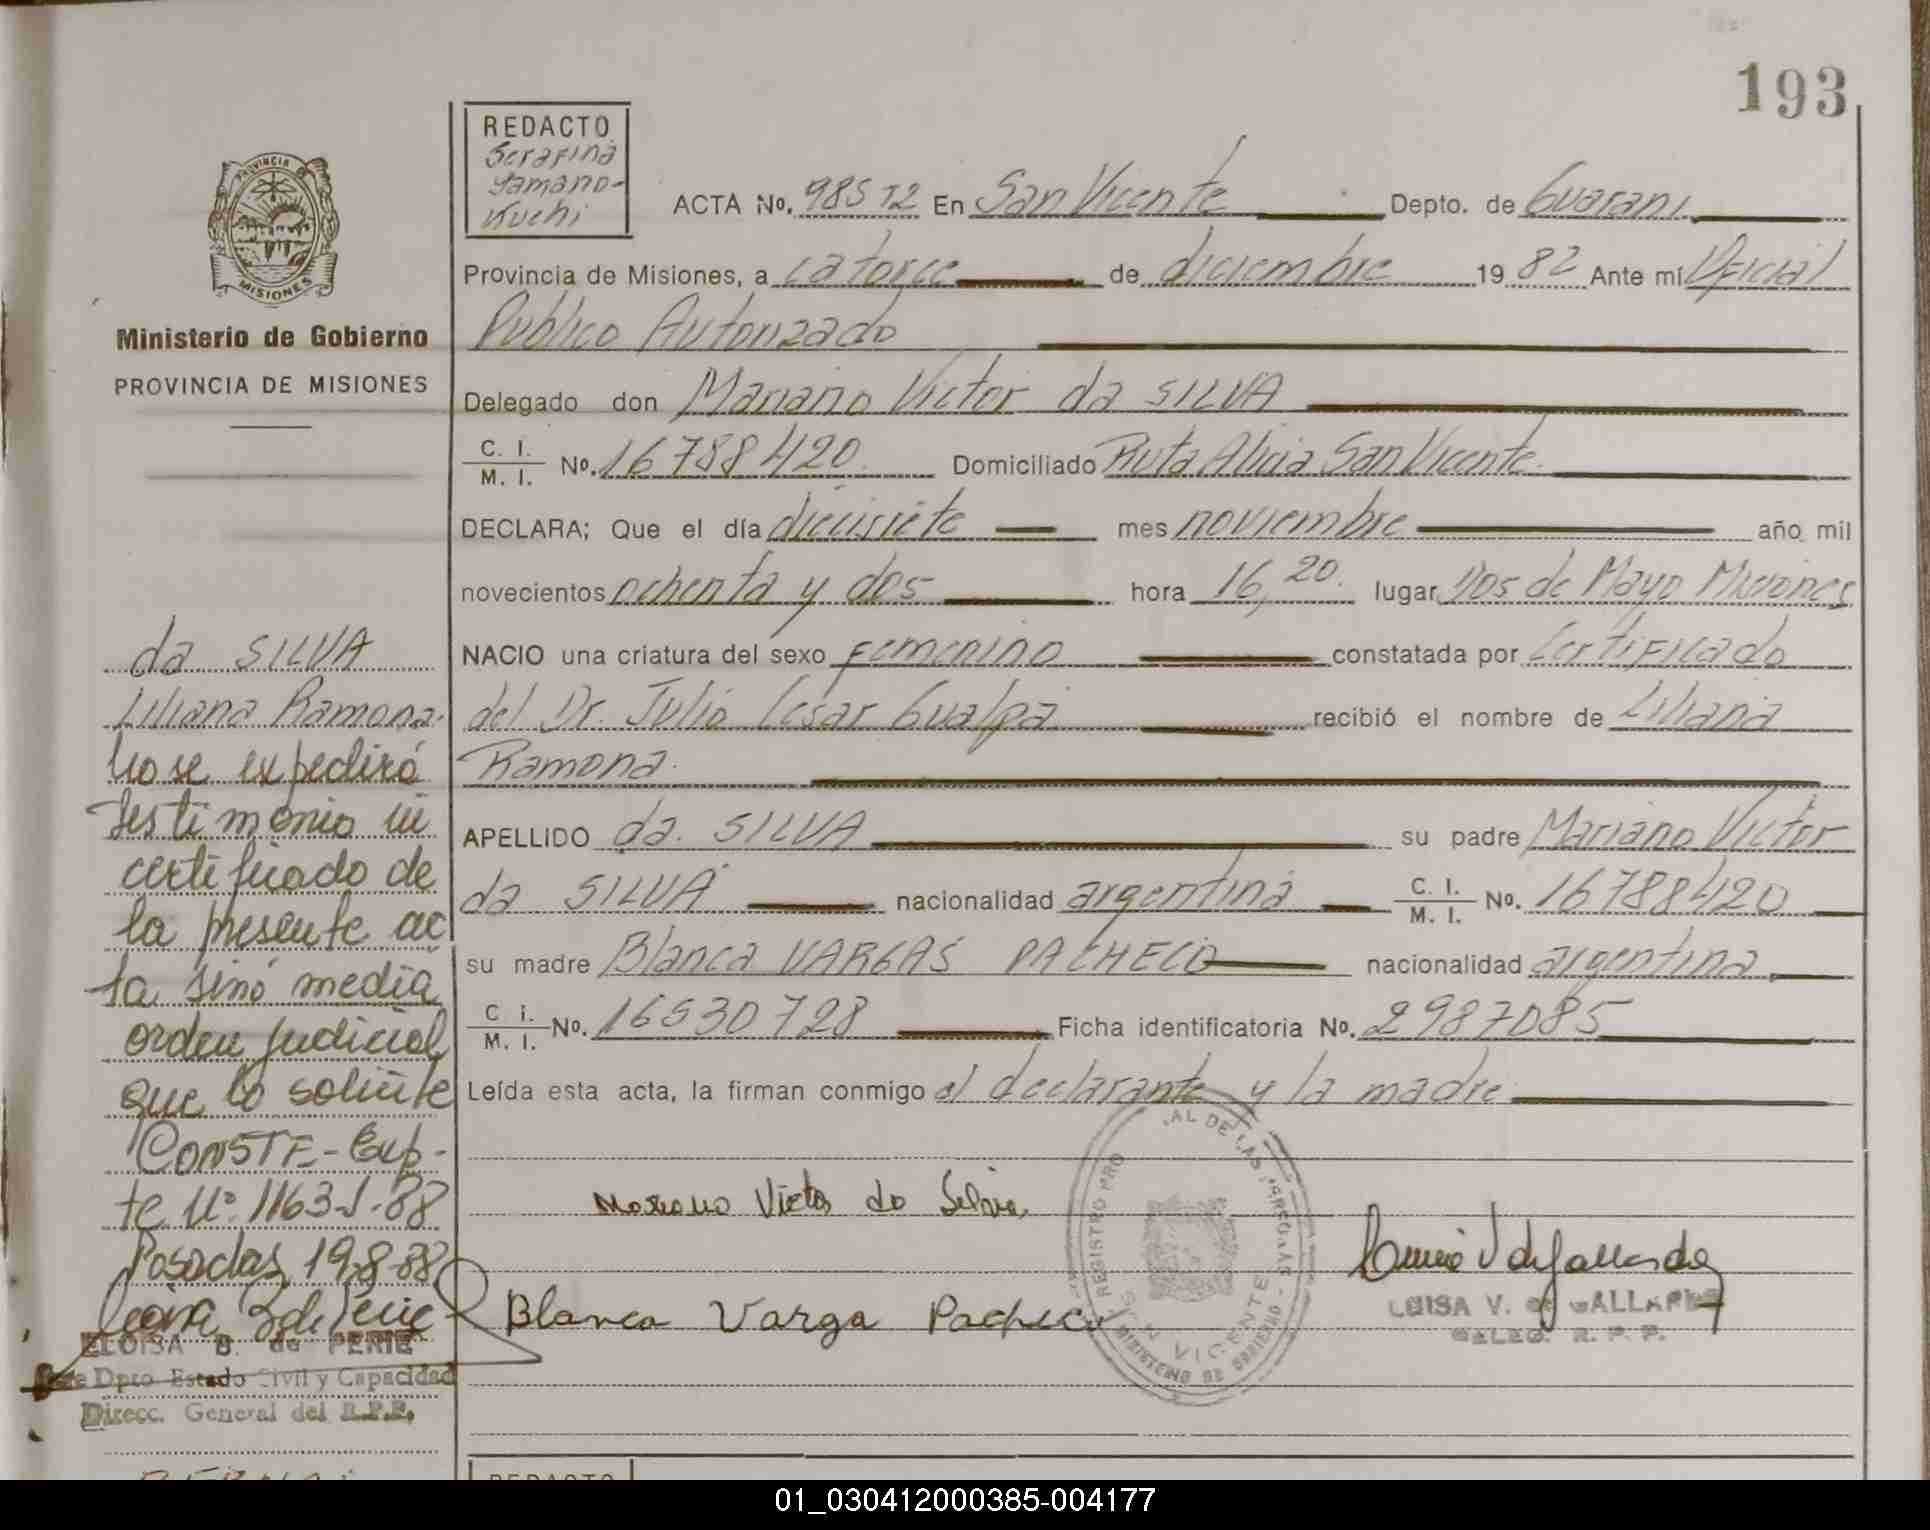 193
REDACTO
Serafina
Yamano-
Kuchi
PROVINCIA DE
MISIONES
Ministerio de Gobierno
PROVINCIA DE MISIONES
ACTA No. 985 T2 En San Vicente Depto. de Guarani
Provincia de Misiones, a catorce de diciembre 19 82 Ante mí Oficial
Publico Autorizado
Delegado don Mariano Victor da SILVA
C. I. / M. I. No. 16788420 Domiciliado Ruta Alicia San Vicente
DECLARA; Que el día diecisiete mes noviembre año mil
novecientos ochenta y dos hora 16,20. lugar Dos de Mayo Misiones
NACIO una criatura del sexo femenino constatada por Certificado
del Dr. Julio Cesar Gualpa recibió el nombre de Liliana
Ramona.
APELLIDO da SILVA su padre Mariano Victor
da SILVA nacionalidad argentina C. I. / M. I. No. 16788420
su madre Blanca VARGAS PACHECO nacionalidad argentina
C. I. / M. I. No. 16530728 Ficha identificatoria No. 2987085
Leída esta acta, la firman conmigo el declarante y la madre
da SILVA
Liliana Ramona.
No se expedirá
testimonio ni
certificado de
la presente ac
ta sinó media
orden judicial
que lo solicite
CONSTE - Exp-
te Nº 1163-J-88
Posadas, 19-8-88
ELOISA B. de PERIE
Jefe Dpto Estado Civil y Capacidad
Direcc. General del R.P.P.
Mariano Victor da Silva
Blanca Varga Pacheco
REGISTRO PRO AL DE LAS PERSONAS
SAN VICENTE
MINISTERIO DE GOBIERNO
LUISA V. de GALLARDO
DELEG. R. P. P.
REDACTO
01_030412000385-004177